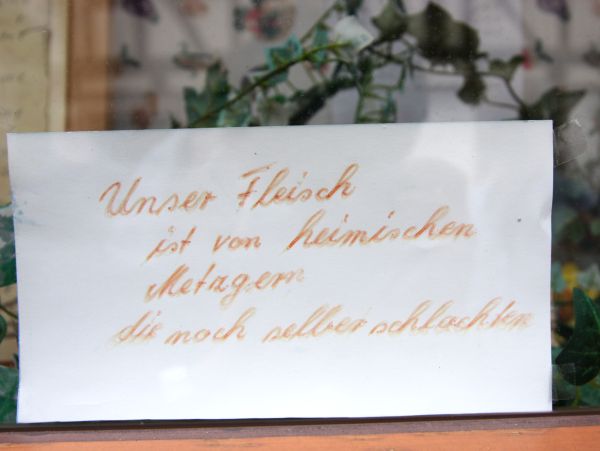 Unser Fleisch
ist von heimischen
Metzgern
die noch selber schlachten